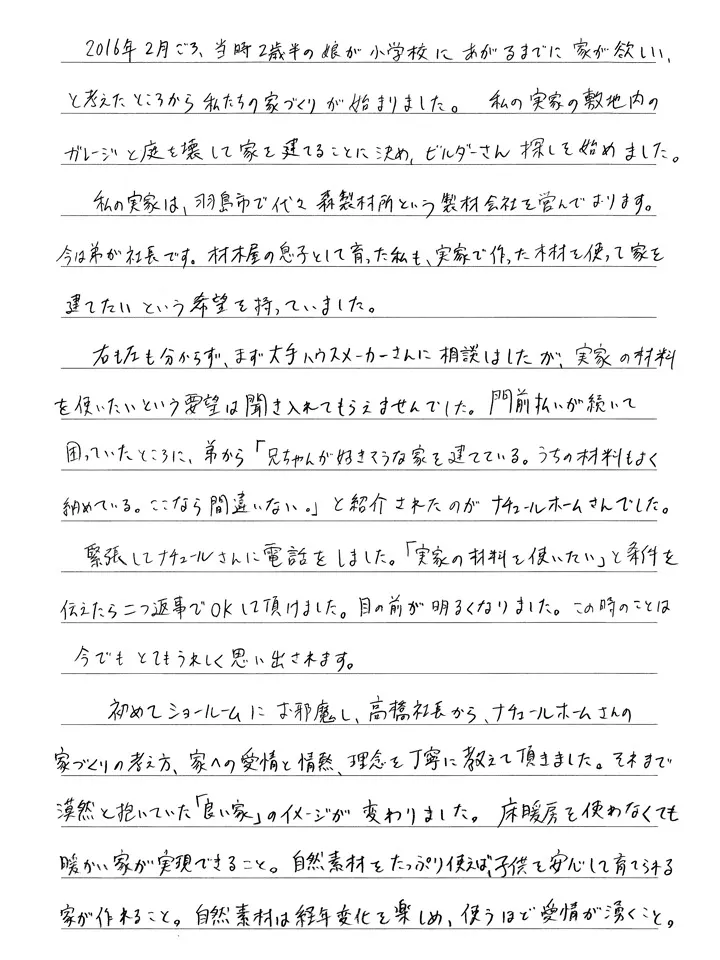 2016年2月ごろ、当時2歳半の娘が小学校にあがるまでに家が欲しい、
と考えたところから私たちの家づくりが始まりました。 私の実家の敷地内の
ガレージと庭を壊して家を建てることに決め、ビルダーさん探しを始めました。
私の実家は、羽島市で代々森製材所という製材会社を営んでおります。
今は弟が社長です。材木屋の息子として育った私も、実家で作った木材を使って家を
建てたいという希望を持っていました。
右も左も分からず、まず大手ハウスメーカーさんに相談はしたが、実家の材料
を使いたいという要望は聞き入れてもらえませんでした。門前払いが続いて
困っていたところに、弟から「兄ちゃんが好きそうな家を建てている。うちの材料もよく
納めている。ここなら間違いない。」と紹介されたのがナチュールホームさんでした。
緊張してナチュールさんに電話をしました。「実家の材料を使いたい」と条件を
伝えたら二つ返事でOKして頂けました。目の前が明るくなりました。この時のことは
今でもとてもうれしく思い出されます。
初めてショールームにお邪魔し、高橋社長から、ナチュールホームさんの
家づくりの考え方、家への愛情と情熱、理念を丁寧に教えて頂きました。それまで
漠然と抱いていた「良い家」のイメージが変わりました。床暖房を使わなくても
暖かい家が実現できること。自然素材をたっぷり使えば、子供を安心して育てられる
家が作れること。自然素材は経年変化を楽しめ、使うほど愛情が湧くこと。